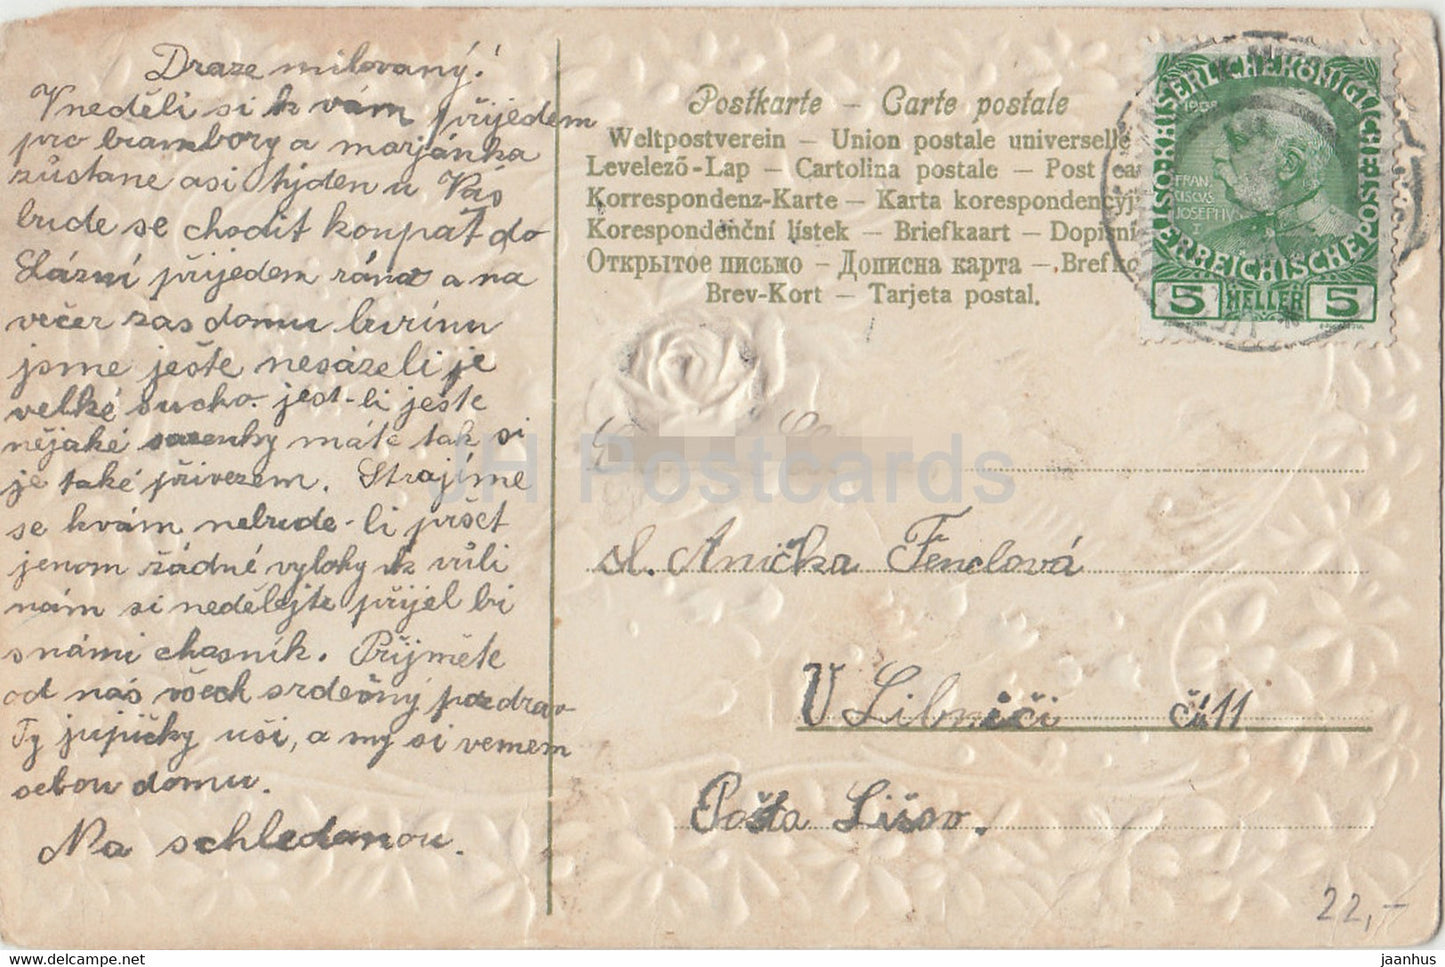 Draze milovaný!
Vneděli si k vám přijedem
pro brambory a marjánka
zůstane asi týden u Vás
bude se chodit koupat do
Lázní přijedem ráno a na
večer zas domu burinu
jsme ješte nesázeli je
velké sucho. jest-li ješte
nějaké sazenky máte tak si
je také přivezem. Strajíme
se kvám nebude-li pršet
jenom žádné vylohy k vůli
nám si nedělejte přijel bi
snámi chasník. Přijměte
od nás všech srdečný pozdrav
Ty jujičky uši, a my si vemem
sebou domu.
Na schledanou.
Postkarte – Carte postale
Weltpostverein – Union postale universelle
Levelező-Lap – Cartolina postale – Post ca
Korrespondenz-Karte – Karta korespondencyj
Korespondenční lístek – Briefkaart – Dopisni
Открытое письмо – Дописна карта – Brefko
Brev-Kort – Tarjeta postal.
KAISERLICHE KÖNIGLICHE ÖSTERREICHISCHE POST
1908
FRAN
CISCVS
JOSEPHV
I
5 HELLER 5
JH Postcards
sl. Anička Fenclová
V Libniči čís 11
Pošta Lišov.
22,-
jaanhus